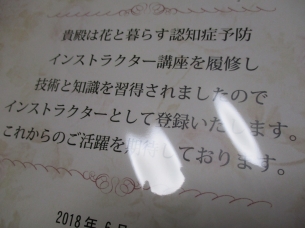 貴殿は花と暮らす認知症予防
インストラクター講座を履修し
技術と知識を習得されましたので
インストラクターとして登録いたします。
これからのご活躍を期待しております。
2018年6